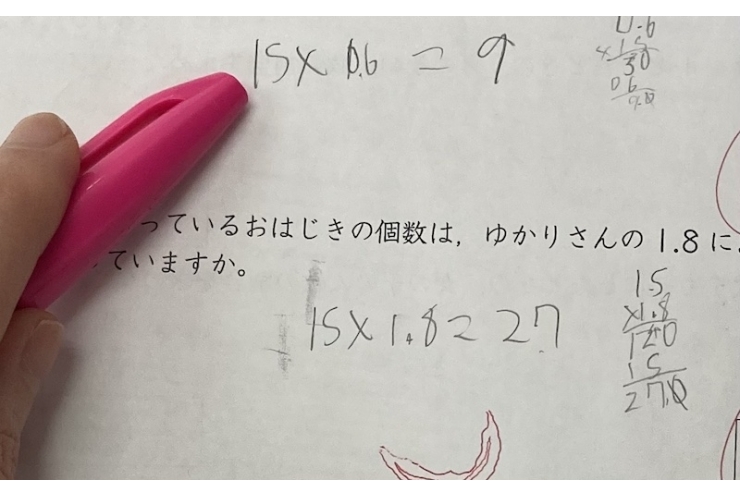 15×0.6=9
0.6
×15
30
06
9.0
っているおはじきの個数は，ゆかりさんの1.8に
ていますか。
15×1.8=27
15
×1.8
120
15
27.0